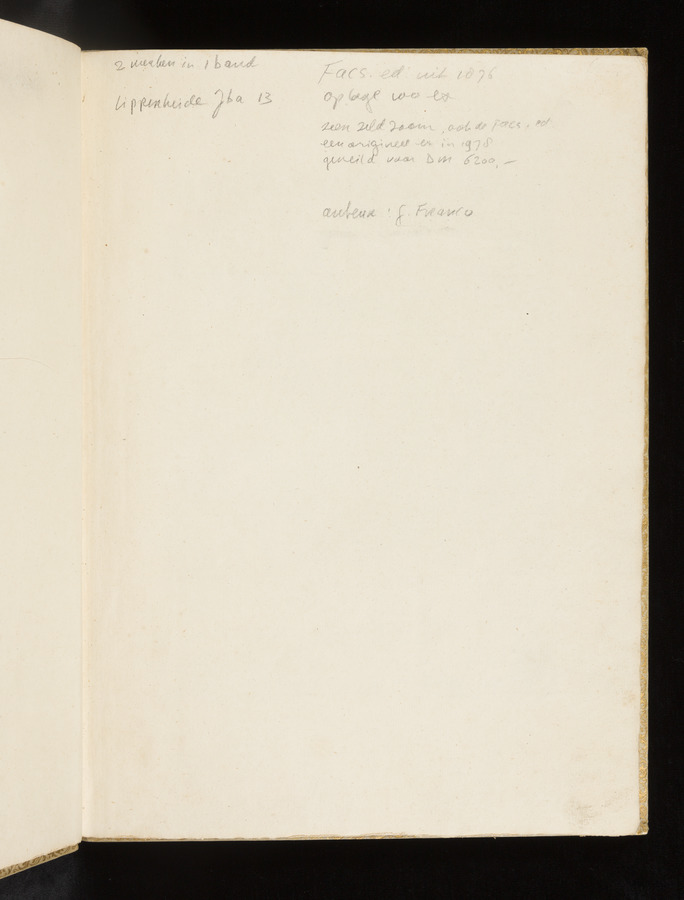 2 werken in 1 band
Lippenheide Jba 13
Facs. ed uit 1876
oplage 100 ex
zeer zeldzaam, ook de facs. ed
een origineel ex in 1978
geveild voor DM 6200,-
auteur: G. Franco